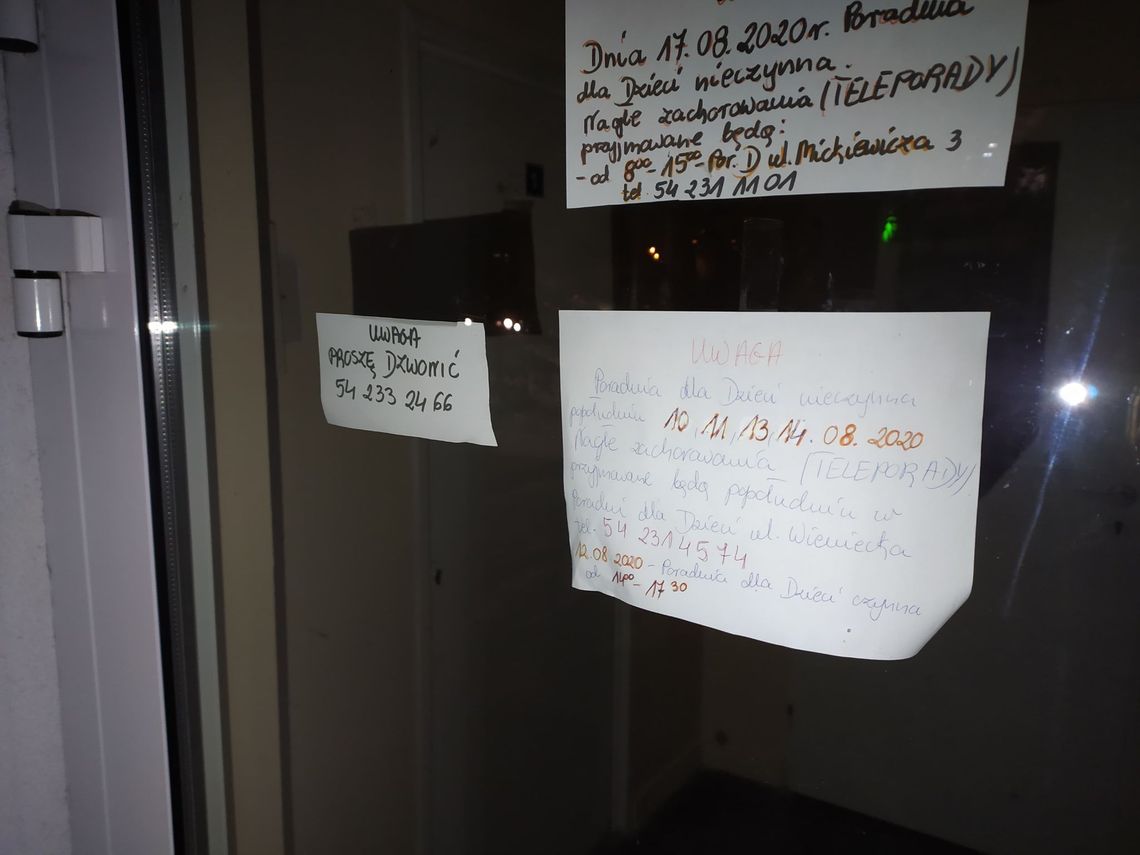 Dnia 17.08.2020r. Poradnia
dla Dzieci nieczynna.
Nagłe zachorowania (TELEPORADY)
przyjmowane będą:
- od 8⁰⁰-15⁰⁰-Por. D ul. Mickiewicza 3
tel. 54 231 11 01
UWAGA
PROSZĘ DZWONIĆ
54 233 24 66
UWAGA
Poradnia dla Dzieci nieczynna
popołudniu 10, 11, 13, 14. 08. 2020
Nagłe zachorowania (TELEPORADY)
przyjmowane będą popołudniu w
Poradni dla Dzieci ul. Wieniecka
tel. 54 231 45 74
12.08 2020 - Poradnia dla Dzieci czynna
od 14⁰⁰ - 17³⁰